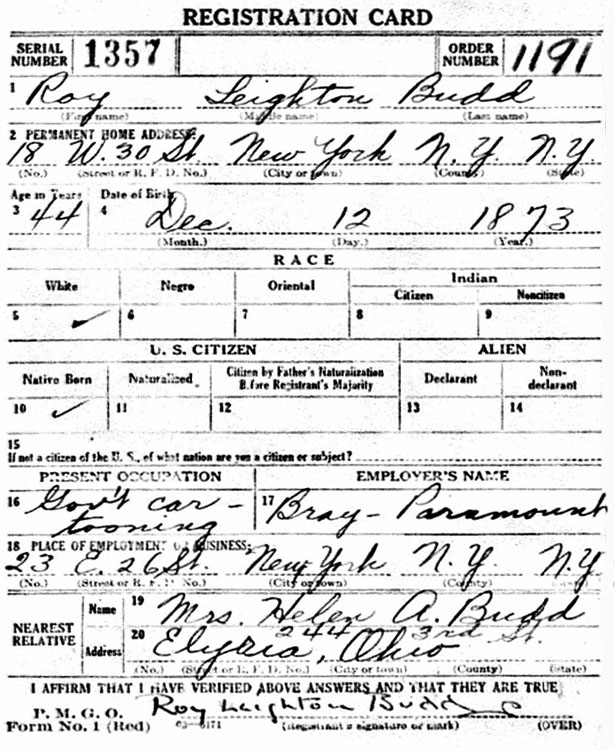 REGISTRATION CARD
SERIAL NUMBER 1357 ORDER NUMBER 1191
1 Roy Leighton Budd
(First name) (Middle name) (Last name)
2 PERMANENT HOME ADDRESS:
18 W. 30 St. New York N.Y. N.Y.
(No.) (Street or R. F. D. No.) (City or town) (County) (State)
Age in Years Date of Birth
3 44 4 Dec. 12 1873
(Month.) (Day.) (Year.)
RACE
White Negro Oriental Indian
Citizen Noncitizen
5 ✓ 6 7 8 9
U. S. CITIZEN ALIEN
Native Born Naturalized Citizen by Father's Naturalization Before Registrant's Majority Declarant Non-declarant
10 ✓ 11 12 13 14
15
If not a citizen of the U. S., of what nation are you a citizen or subject?
PRESENT OCCUPATION EMPLOYER'S NAME
16 Gov't car- 17 Bray-Paramount
tooning
18 PLACE OF EMPLOYMENT OR BUSINESS:
23 E. 26 St. New York N.Y. N.Y
(No.) (Street or R. F. D. No.) (City or town) (County)
NEAREST RELATIVE Name 19 Mrs. Helen A. Budd
244 3rd St.
Address 20 Elyria, Ohio
(No.) (Street or R. F. D. No.) (City or town) (County) (State)
I AFFIRM THAT I HAVE VERIFIED ABOVE ANSWERS AND THAT THEY ARE TRUE
P. M. G. O. Roy Leighton Budd
Form No. 1 (Red) (Registrant's signature or mark) (OVER)